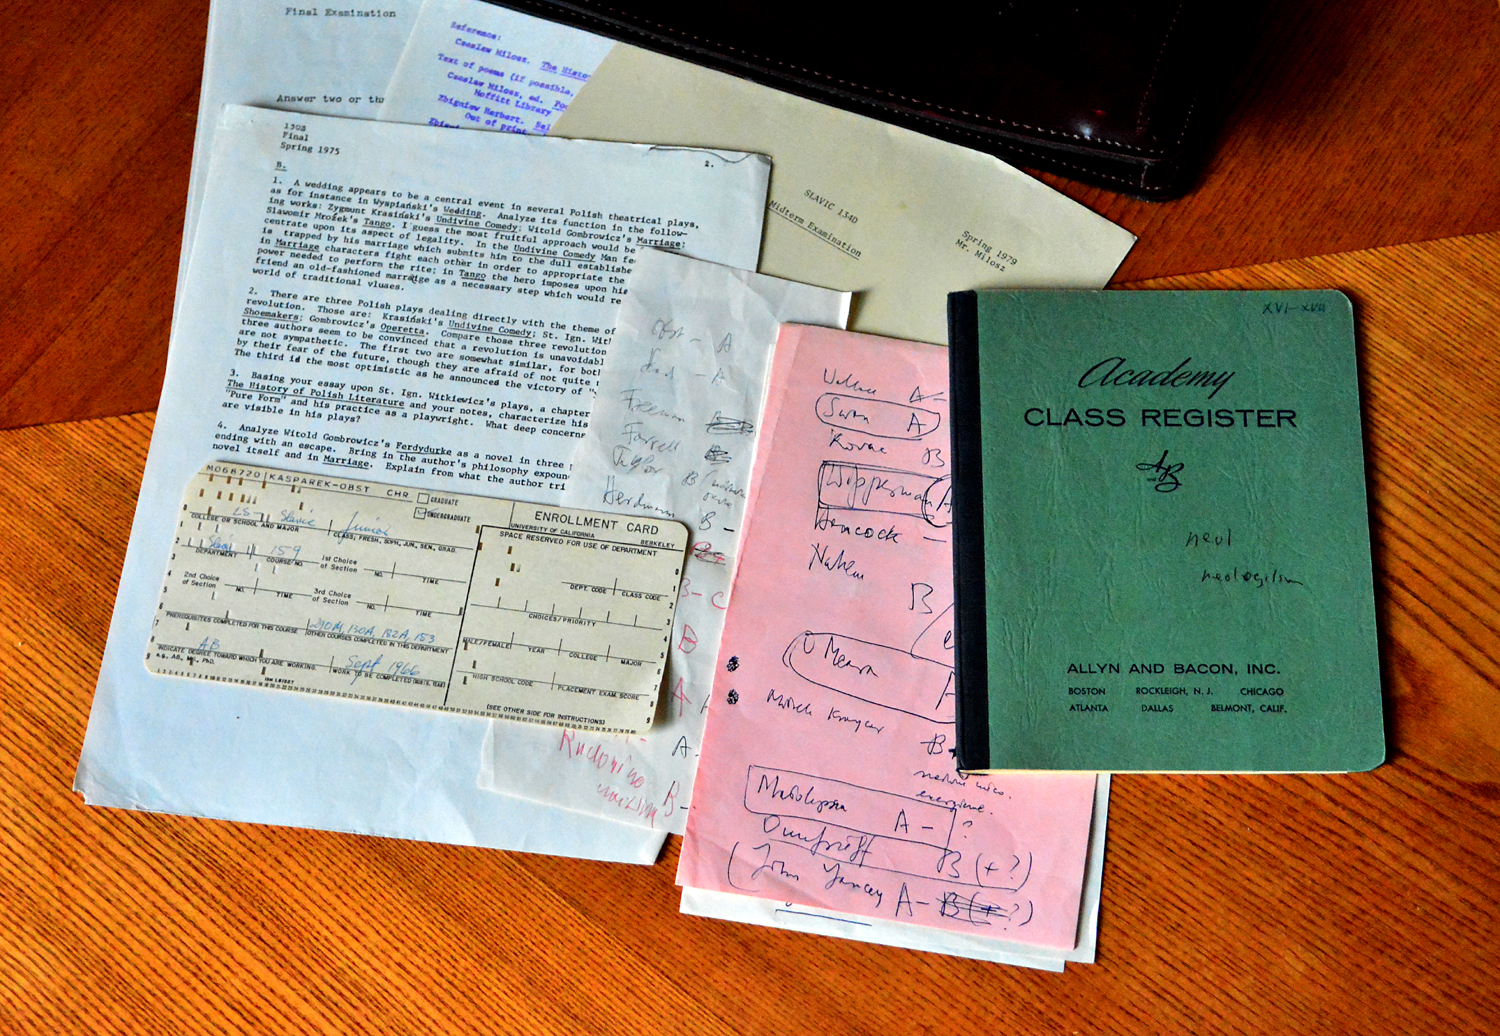 Final Examination
Answer two or th
Reference:
Czeslaw Milosz. The Histo
Text of poems (if possible,
Czeslaw Milosz, ed. Po
Moffitt Library
Zbigniew Herbert. Sel
Out of print
Zbigni
130B
Final
Spring 1975
2.
B.
1. A wedding appears to be a central event in several Polish theatrical plays,
as for instance in Wyspiański's Wedding. Analyze its function in the follow-
ing works: Zygmunt Krasiński's Undivine Comedy; Witold Gombrowicz's Marriage;
Slawomir Mrożek's Tango. I guess the most fruitful approach would be
centrate upon its aspect of legality. In the Undivine Comedy Man fee
is trapped by his marriage which submits him to the dull establishe
in Marriage characters fight each other in order to appropriate the
power needed to perform the rite; in Tango the hero imposes upon his
friend an old-fashioned marraige as a necessary step which would re
world of traditional vluaes.
2. There are three Polish plays dealing directly with the theme of
revolution. Those are: Krasiński's Undivine Comedy; St. Ign. Wit
Shoemakers; Gombrowicz's Operetta. Compare those three revolution
three authors seem to be convinced that a revolution is unavoidabl
are not sympathetic. The first two are somewhat similar, for bot
by their fear of the future, though they are afraid of not quite
The third is the most optimistic as he announced the victory of "
3. Basing your essay upon St. Ign. Witkiewicz's plays, a chapter
The History of Polish Literature and your notes, characterize his
"Pure Form" and his practice as a playwright. What deep concerns
are visible in his plays?
4. Analyze Witold Gombrowicz's Ferdydurke as a novel in three
ending with an escape. Bring in the author's philosophy expoun
novel itself and in Marriage. Explain from what the author tri
SLAVIC 134D
Midterm Examination
Spring 1979
Mr. Milosz
M066720 KASPAREK-OBST CHR
GRADUATE
UNDERGRADUATE
ENROLLMENT CARD
UNIVERSITY OF CALIFORNIA BERKELEY
SPACE RESERVED FOR USE OF DEPARTMENT
LS - Slavic Junior
COLLEGE OR SCHOOL AND MAJOR CLASS, FRESH, SOPH, JUN, SEN, GRAD.
Slavic 159
DEPARTMENT COURSE NO. 1st Choice of Section NO. TIME
2nd Choice of Section NO. TIME 3rd Choice of Section NO. TIME
210M, 130A, 182A, 153
PREREQUISITES COMPLETED FOR THIS COURSE OTHER COURSES COMPLETED IN THIS DEPARTMENT
AB Sept 1966
INDICATE DEGREE TOWARD WHICH YOU ARE WORKING.
e.g., AB, MA, PhD. WORK TO BE COMPLETED (MONTH, YEAR)
DEPT. CODE CLASS CODE
CHOICES/PRIORITY
MALE/FEMALE YEAR COLLEGE MAJOR
HIGH SCHOOL CODE PLACEMENT EXAM. SCORE
(SEE OTHER SIDE FOR INSTRUCTIONS)
Obst - A
- A
Freeman
Farrell
Taylor B
Herdman B -
B - C
B
A
A-
B-
Wallace A-
Swan A
Kovac B
Wipperman A
Hancock -
Nahem
B/
O'Meara A
Mitch Kruger
B+
A- ?
B (+?)
John Yancey A- B(+?)
XVI-XVII
Academy
CLASS REGISTER
AB
neol
neologism
ALLYN AND BACON, INC.
BOSTON ROCKLEIGH, N. J. CHICAGO
ATLANTA DALLAS BELMONT, CALIF.